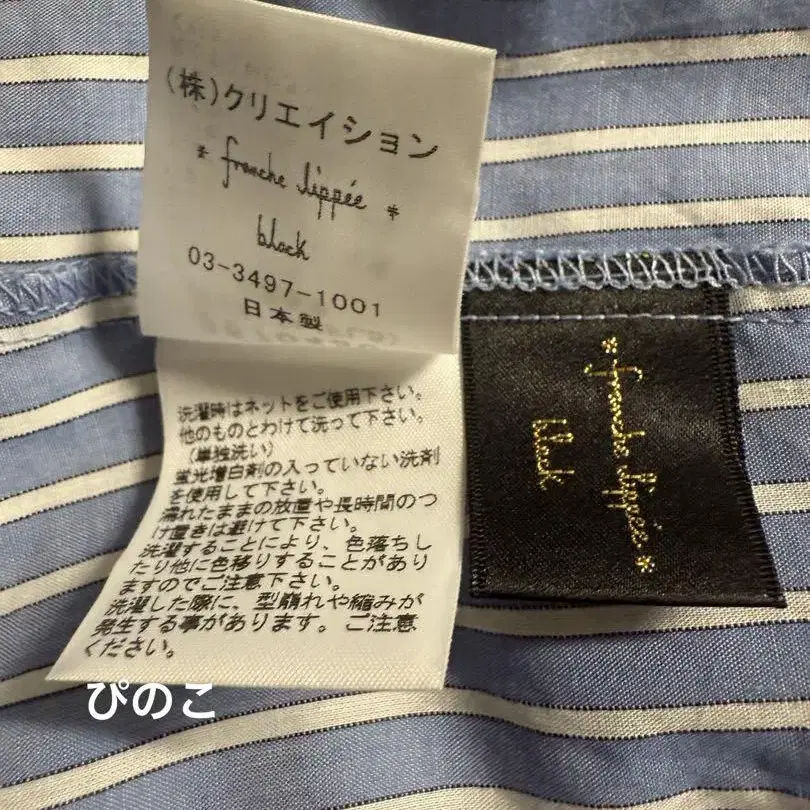 (株)クリエイション
* franche lippée *
black
03-3497-1001
日本製
洗濯時はネットをご使用下さい。
他のものとわけて洗って下さい。
(単独洗い)
蛍光増白剤の入っていない洗剤
を使用して下さい。
濡れたままの放置や長時間のつ
け置きは避けて下さい。
洗濯することにより、色落ちし
たり他に色移りすることがあり
ますのでご注意下さい。
洗濯した際に、型崩れや縮みが
発生する事があります。ご注意
ください。
* franche lippée *
black
ぴのこ